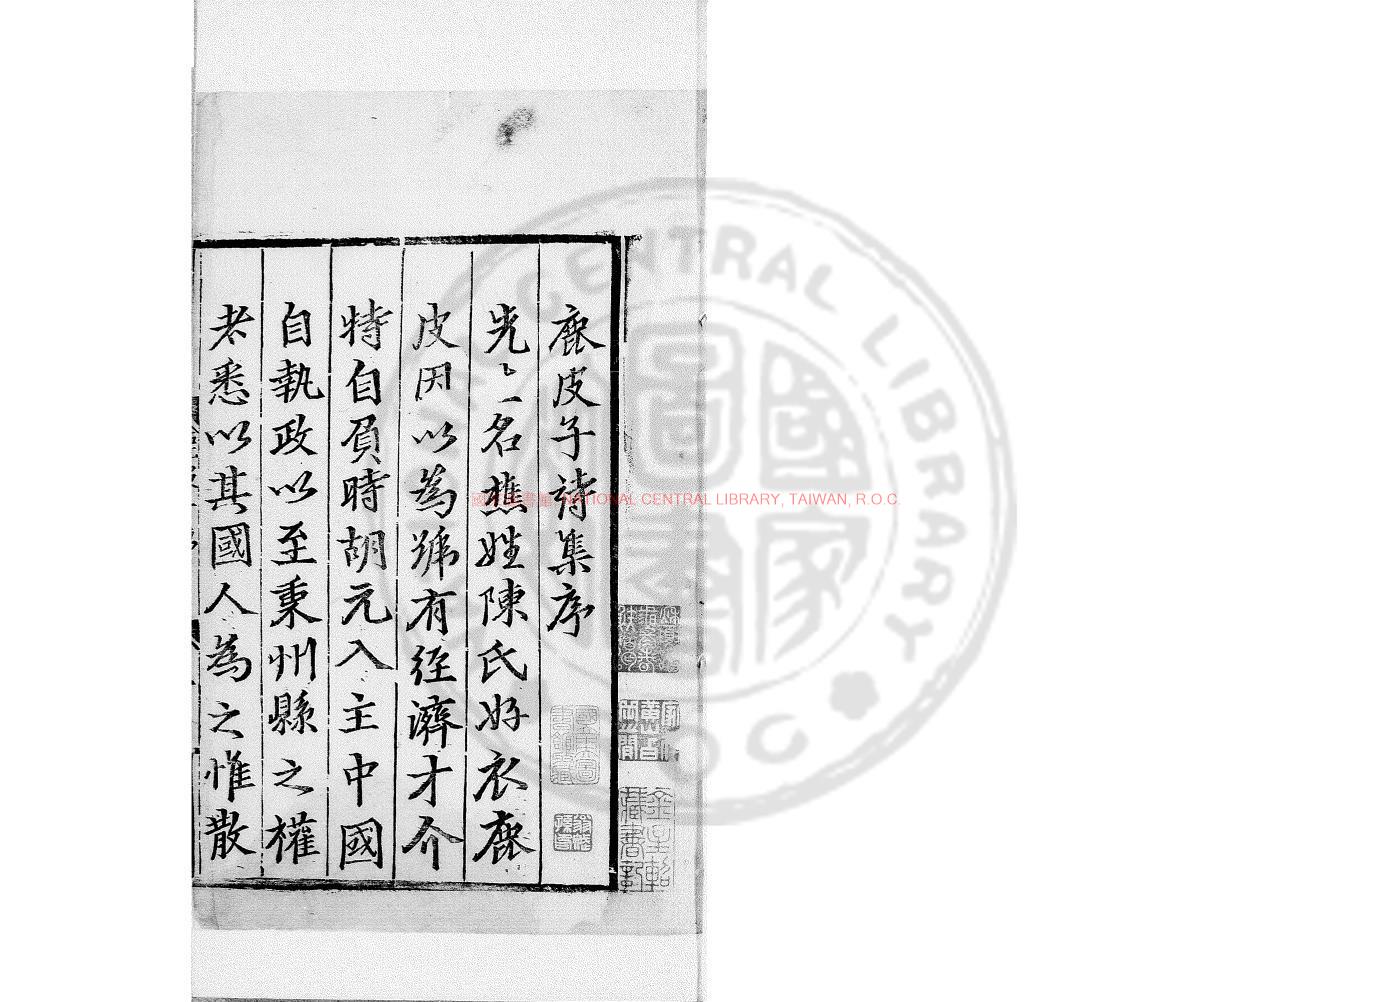 鹿皮子詩集序
先〻一名樵姓陳氏好衣鹿
皮因以為號有經濟才介
特自負時胡元入主中國
自執政以至秉州縣之權
者悉以其國人為之惟散
國家圖書館 NATIONAL CENTRAL LIBRARY, TAIWAN, R.O.C.
NATIONAL CENTRAL LIBRARY
國家圖書